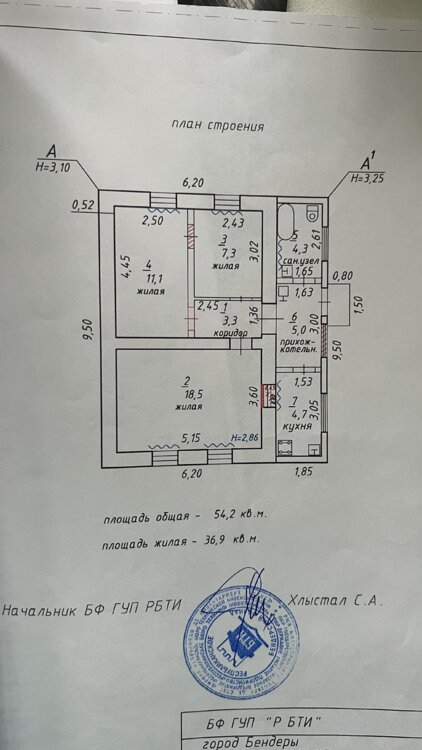 план строения
А
Н=3,10
А¹
Н=3,25
6,20
0,52
2,50
2,43
5
4,3
сан.узел
2,61
1,65
4,45
4
11,1
жилая
3
7,3
жилая
3,02
0,80
1,50
1,63
2,45
1
3,3
коридор
1,36
6
5,0
3,00
прихож-
котельн.
9,50
9,50
2
18,5
жилая
3,60
1,53
7
4,7
кухня
3,05
5,15
Н=2,86
6,20
1,85
площадь общая - 54,2 кв.м.
площадь жилая - 36,9 кв.м.
Начальник БФ ГУП РБТИ Хлыстал С.А.
РЕСПУБЛИКАНСКОЕ
БТИ
БФ ГУП "Р БТИ"
город Бендеры